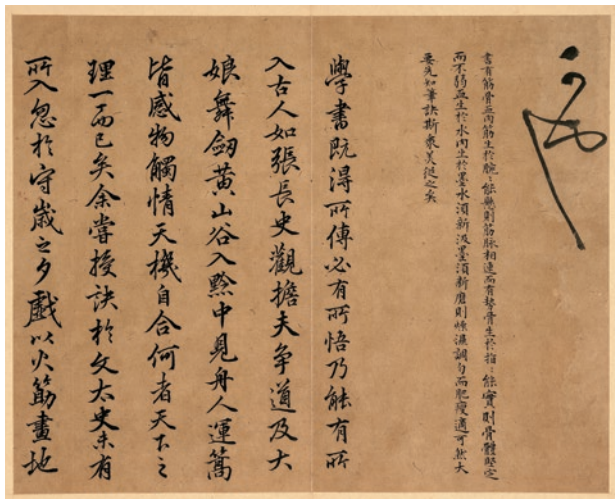 書有筋骨血肉筋生於腕〻能懸則筋脉相連而有勢骨生於指〻能實則骨體堅定
而不弱血生於水肉生於墨水須新汲墨須新磨則燥濕調勻而肥瘦適可然大
要先知筆訣斯衆美從之矣
學書既得所傳必有所悟乃能有所
入古人如張長史觀擔夫争道及大
娘舞劒黄山谷入黔中見舟人運篙
皆感物觸情天機自合何者天下之
理一而已矣余嘗授訣於文太史未有
所入忽於守歲之夕戲以火筋畫地